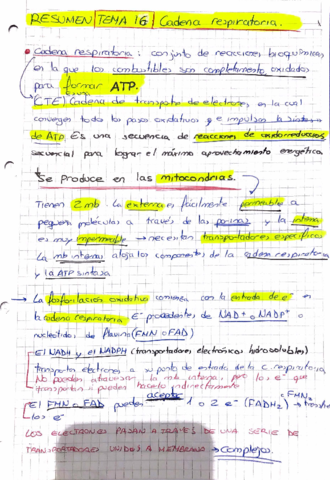 RESUMEN TEMA 16 Cadena respiratoria.
• Cadena respiratoria: conjunto de reacciones bioquímicas
en la que los combustibles son completamente oxidados
para formar ATP.
(CTE) Cadena de transporte de electrones, en la cual
convergen todos los pasos oxidativos y e impulsan la síntesis
de ATP. Es una secuencia de reacciones de oxidorreducción
secuencial para lograr el máximo aprovechamiento energético
Se produce en las mitocondrias.
Tienen 2 mb. La externa es fácilmente permeable a
pequeñas moléculas a través de las porinas y la interna
es muy impermeable → necesitan transportadores específicos
La mb interna aloja los componentes de la cadena respiratoria
y la ATP sintasa
→ La fosforilación oxidativa comienza con la entrada de e⁻ en
la cadena respiratoria. E⁻ procedentes de NAD⁺ o NADP⁺ o
nucleótidos de flavina (FMN o FAD)
El NADH y el NADPH (transportadores electrónicos hidrosolubles)
transporta electrones a su punto de entrada de la c. respiratoria,
No pueden atravesar la mb interna, pero los e⁻ que
transportan sí pueden hacerlo indirectamente
El FMN o FAD pueden aceptar 1 o 2 e⁻ (FADH₂)
los e⁻
LOS ELECTRONES PASAN A TRAVÉS DE UNA SERIE DE
TRANSPORTADORES UNIDOS A MEMBRANA → Complejos.